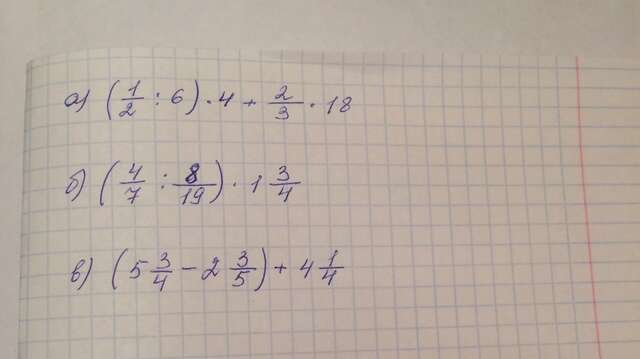 а) (1/2 : 6) · 4 + 2/3 · 18
б) (4/7 : 8/19) · 1 3/4
в) (5 3/4 - 2 3/5) + 4 1/4